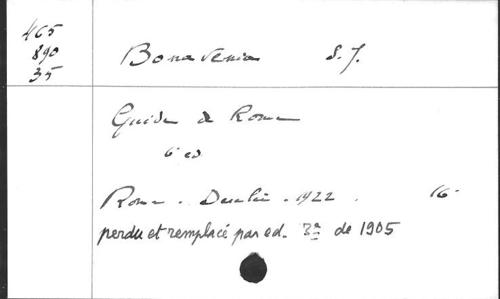 465
890
35
Bonavenia S. J.
Guide de Rome
6 ed
Rome - Desclée - 1922. 16°
perdu et remplacé par ed. 3ª de 1905